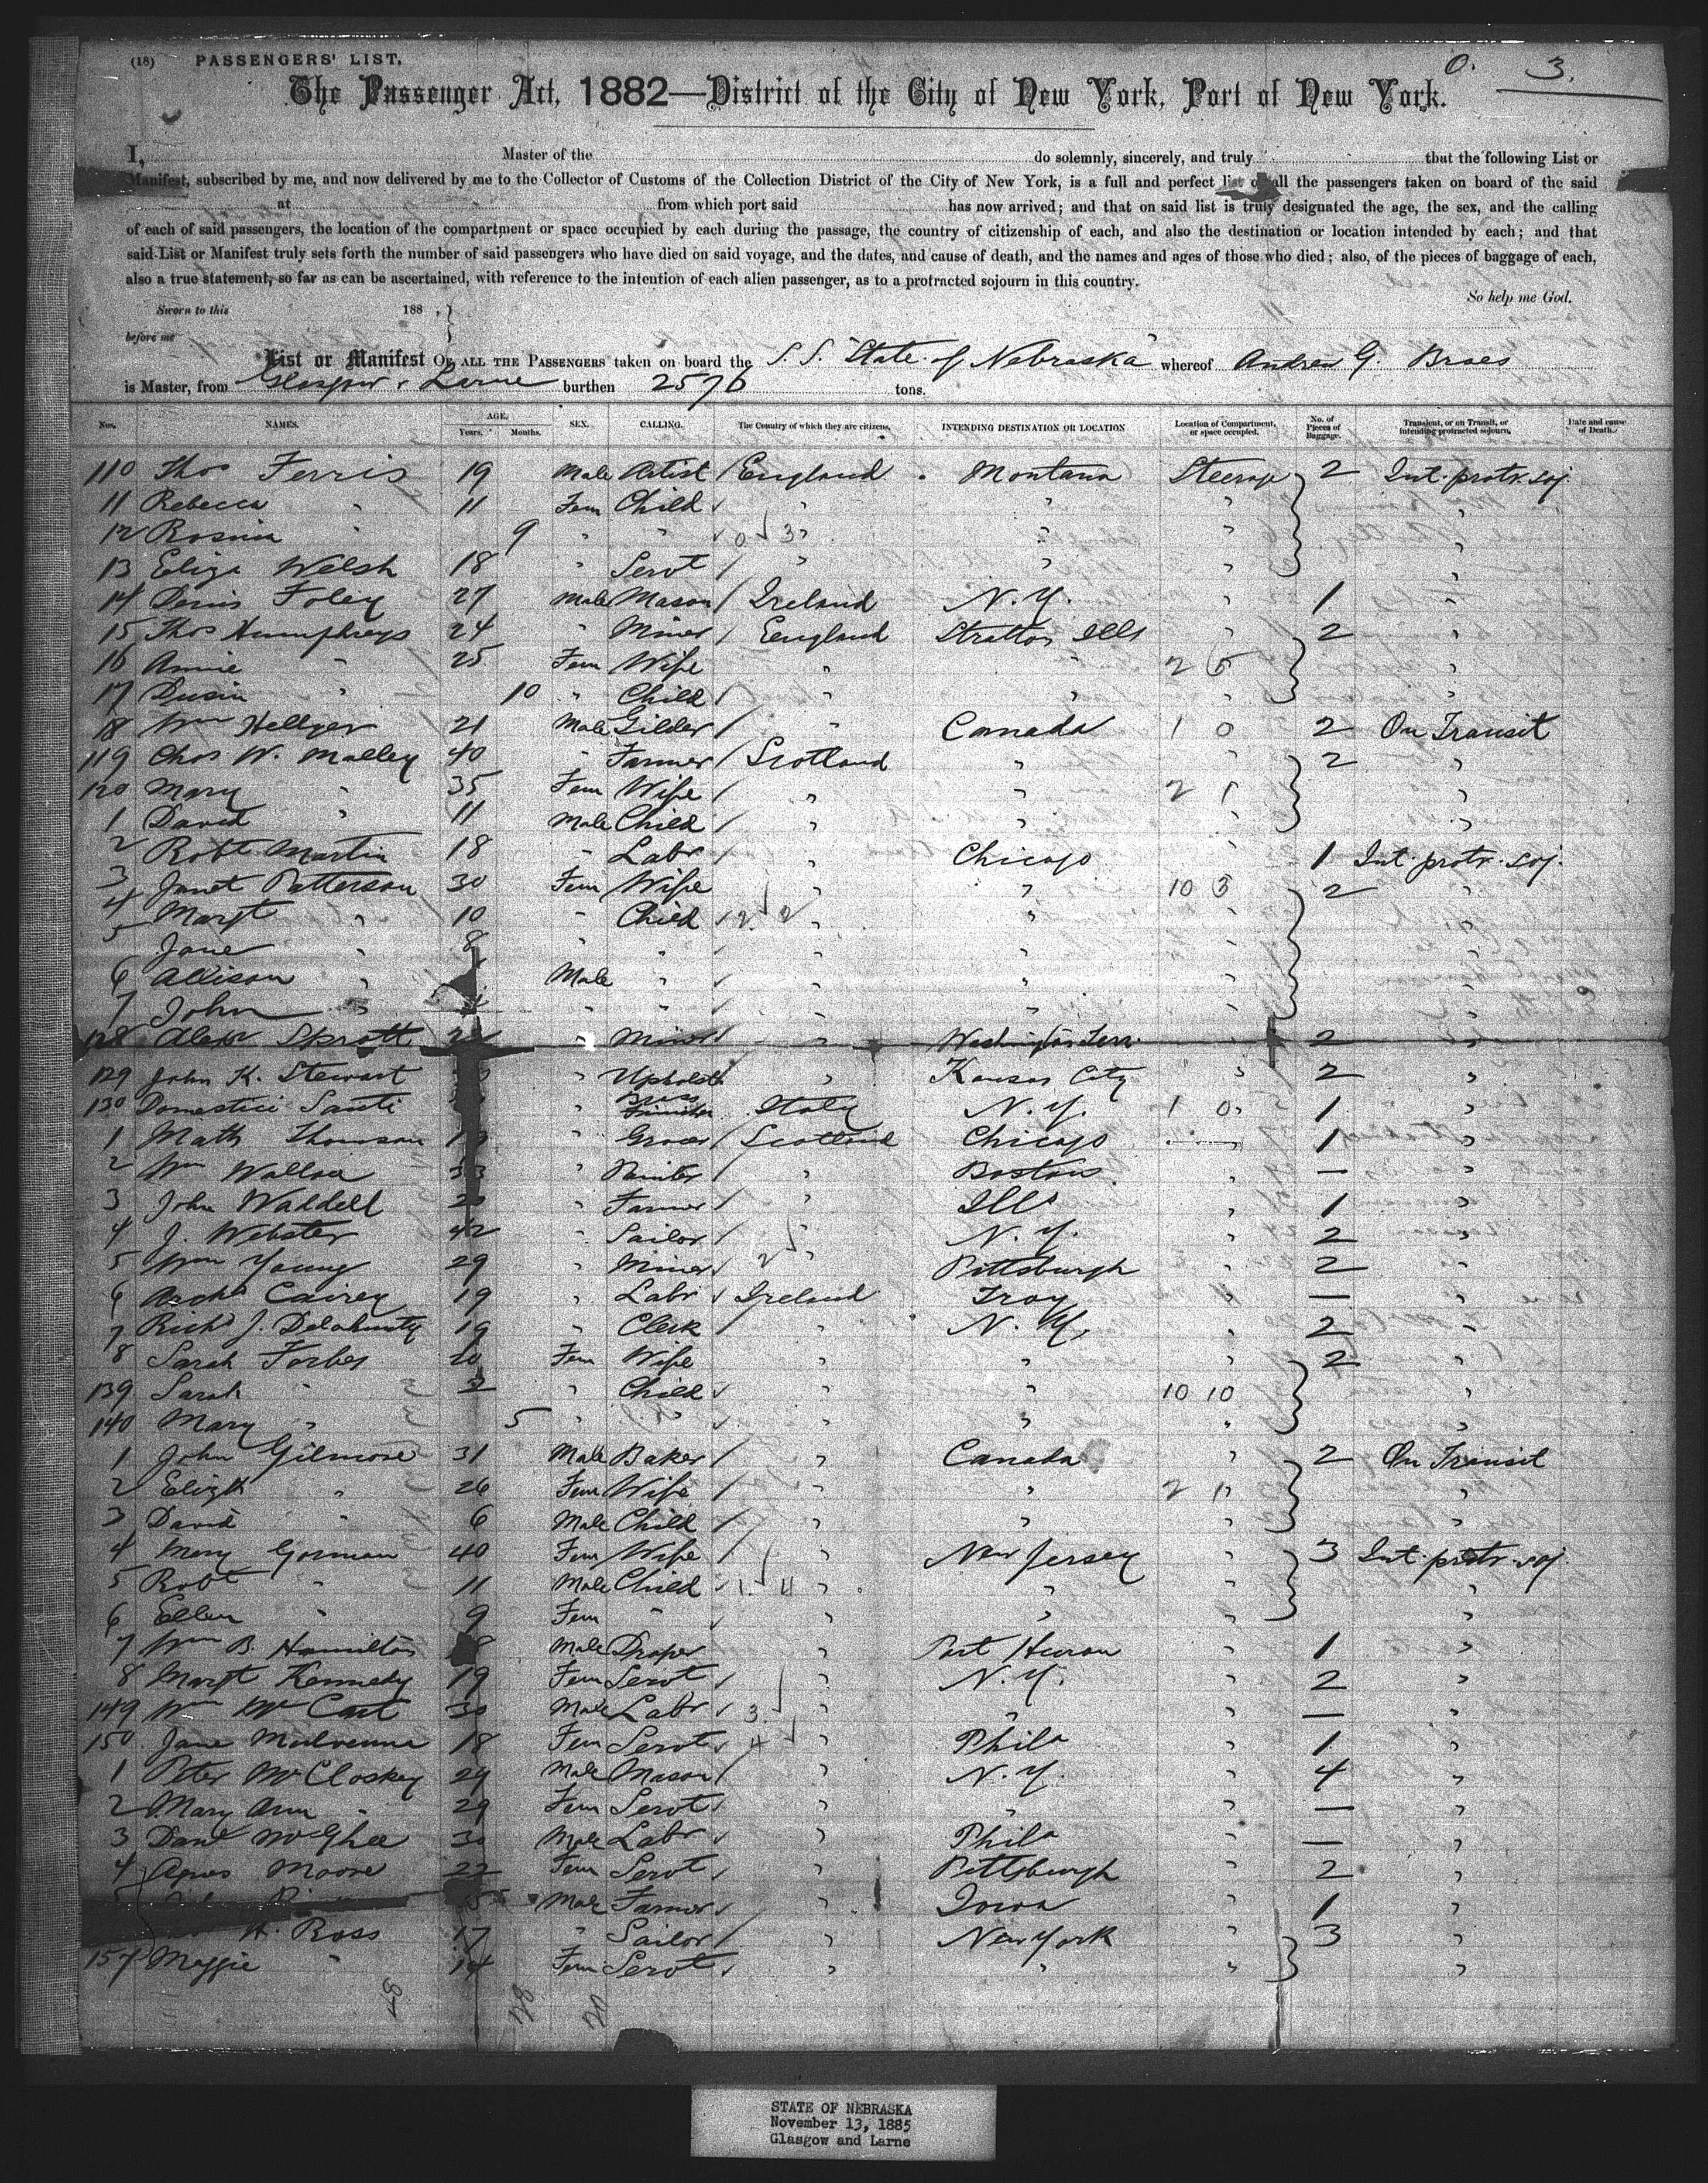 (18) PASSENGERS' LIST. O. 3.
The Passenger Act, 1882—District of the City of New York, Port of New York.
I, Master of the do solemnly, sincerely, and truly that the following List or
Manifest, subscribed by me, and now delivered by me to the Collector of Customs of the Collection District of the City of New York, is a full and perfect list of all the passengers taken on board of the said
at from which port said has now arrived; and that on said list is truly designated the age, the sex, and the calling
of each of said passengers, the location of the compartment or space occupied by each during the passage, the country of citizenship of each, and also the destination or location intended by each; and that
said List or Manifest truly sets forth the number of said passengers who have died on said voyage, and the dates, and cause of death, and the names and ages of those who died; also, of the pieces of baggage of each,
also a true statement, so far as can be ascertained, with reference to the intention of each alien passenger, as to a protracted sojourn in this country.
So help me God.
Sworn to this 188 ,
before me
List or Manifest OF ALL THE PASSENGERS taken on board the S.S. "State of Nebraska" whereof Andrew G. Braes
is Master, from Glasgow & Larne burthen 2576 tons.
Nos. NAMES. AGE. Years. Months. SEX. CALLING. The Country of which they are citizens. INTENDING DESTINATION OR LOCATION Location of Compartment, or space occupied. No. of Pieces of Baggage. Transient, or on Transit, or intending protracted sojourn. Date and cause of Death.
110 Thos Ferris 19 Male Artist England Montana Steerage 2 Int. protr. soj.
11 Rebecca " 11 Fem Child " " " "
12 Rosina " 9 " " 0 3 " " " "
13 Eliza Welsh 18 " Servt " " " "
14 Denis Foley 27 Male Mason Ireland N.Y. " 1 "
15 Thos Humphreys 24 " Miner England Stratton Ills " 2 "
16 Annie " 25 Fem Wife " " 2 5 "
17 " 10 " Child " " " "
18 Wm Hellyer 21 Male Gilder " Canada 1 0 2 On Transit
119 Chas W. Malley 40 " Farmer Scotland " " 2 "
120 Mary " 35 Fem Wife " " 2 1 "
1 David " 11 Male Child " " " "
2 Robt Martin 18 " Labr " Chicago " 1 Int. protr. soj.
3 Janet Patterson 30 Fem Wife " " 10 3 2 "
4 Margt " 10 " Child 2 2 " " " "
5 Jane " 8 " " " " " "
6 Allison " Male " " " " "
7 John " " " " " " "
128 Alexr Sprott " Miner " Washington Terr. " 2 "
129 John K. Stewart " Upholstr " Kansas City " 2 "
130 Domestici Santi " Brass Finisher Italy N.Y. 1 0 1 "
1 Math Thomson " Grocer Scotland Chicago 1 "
2 Wm Wallace 33 " Painter " Boston " — "
3 John Waddell " Farmer " Ills " 1 "
4 J. Webster 42 " Sailor " N.Y. " 2 "
5 Wm Young 29 " Miner 2 " Pittsburgh " 2 "
6 Archd Cairey 19 " Labr Ireland Troy " — "
7 Richd J. Delahunty 19 " Clerk " N.Y. " 2 "
8 Sarah Forbes 20 Fem Wife " " " 2 "
139 Sarah " 2 " Child " " 10 10 "
140 Mary " 5 " " " " " "
1 John Gilmore 31 Male Baker " Canada " 2 On Transit
2 Elizth " 26 Fem Wife " " 2 1 "
3 David " 6 Male Child " " " "
4 Mary Gorman 40 Fem Wife " New Jersey " 3 Int. protr. soj.
5 Robt " 11 Male Child 1 4 " " " "
6 Ellen " 9 Fem " " " " "
7 Wm B. Hamilton Male Draper " Port Huron " 1 "
8 Margt Kennedy 19 Fem Servt " N.Y. " 2 "
149 Wm Mc Cart 30 Male Labr 3 " " " — "
150 Jane Mulvenna 18 Fem Servt 4 " Phila " 1 "
1 Peter McCloskey 29 Male Mason " N.Y. " 4 "
2 Mary Ann " 29 Fem Servt " " " — "
3 Danl McGhee 30 Male Labr " Phila " — "
4 Agnes Moore 22 Fem Servt " Pittsburgh " 2 "
5 Male Farmer " Iowa " 1 "
H. Ross 17 " Sailor " New York " 3 "
157 Maggie " 14 Fem Servt " " " "
STATE OF NEBRASKA
November 13, 1885
Glasgow and Larne